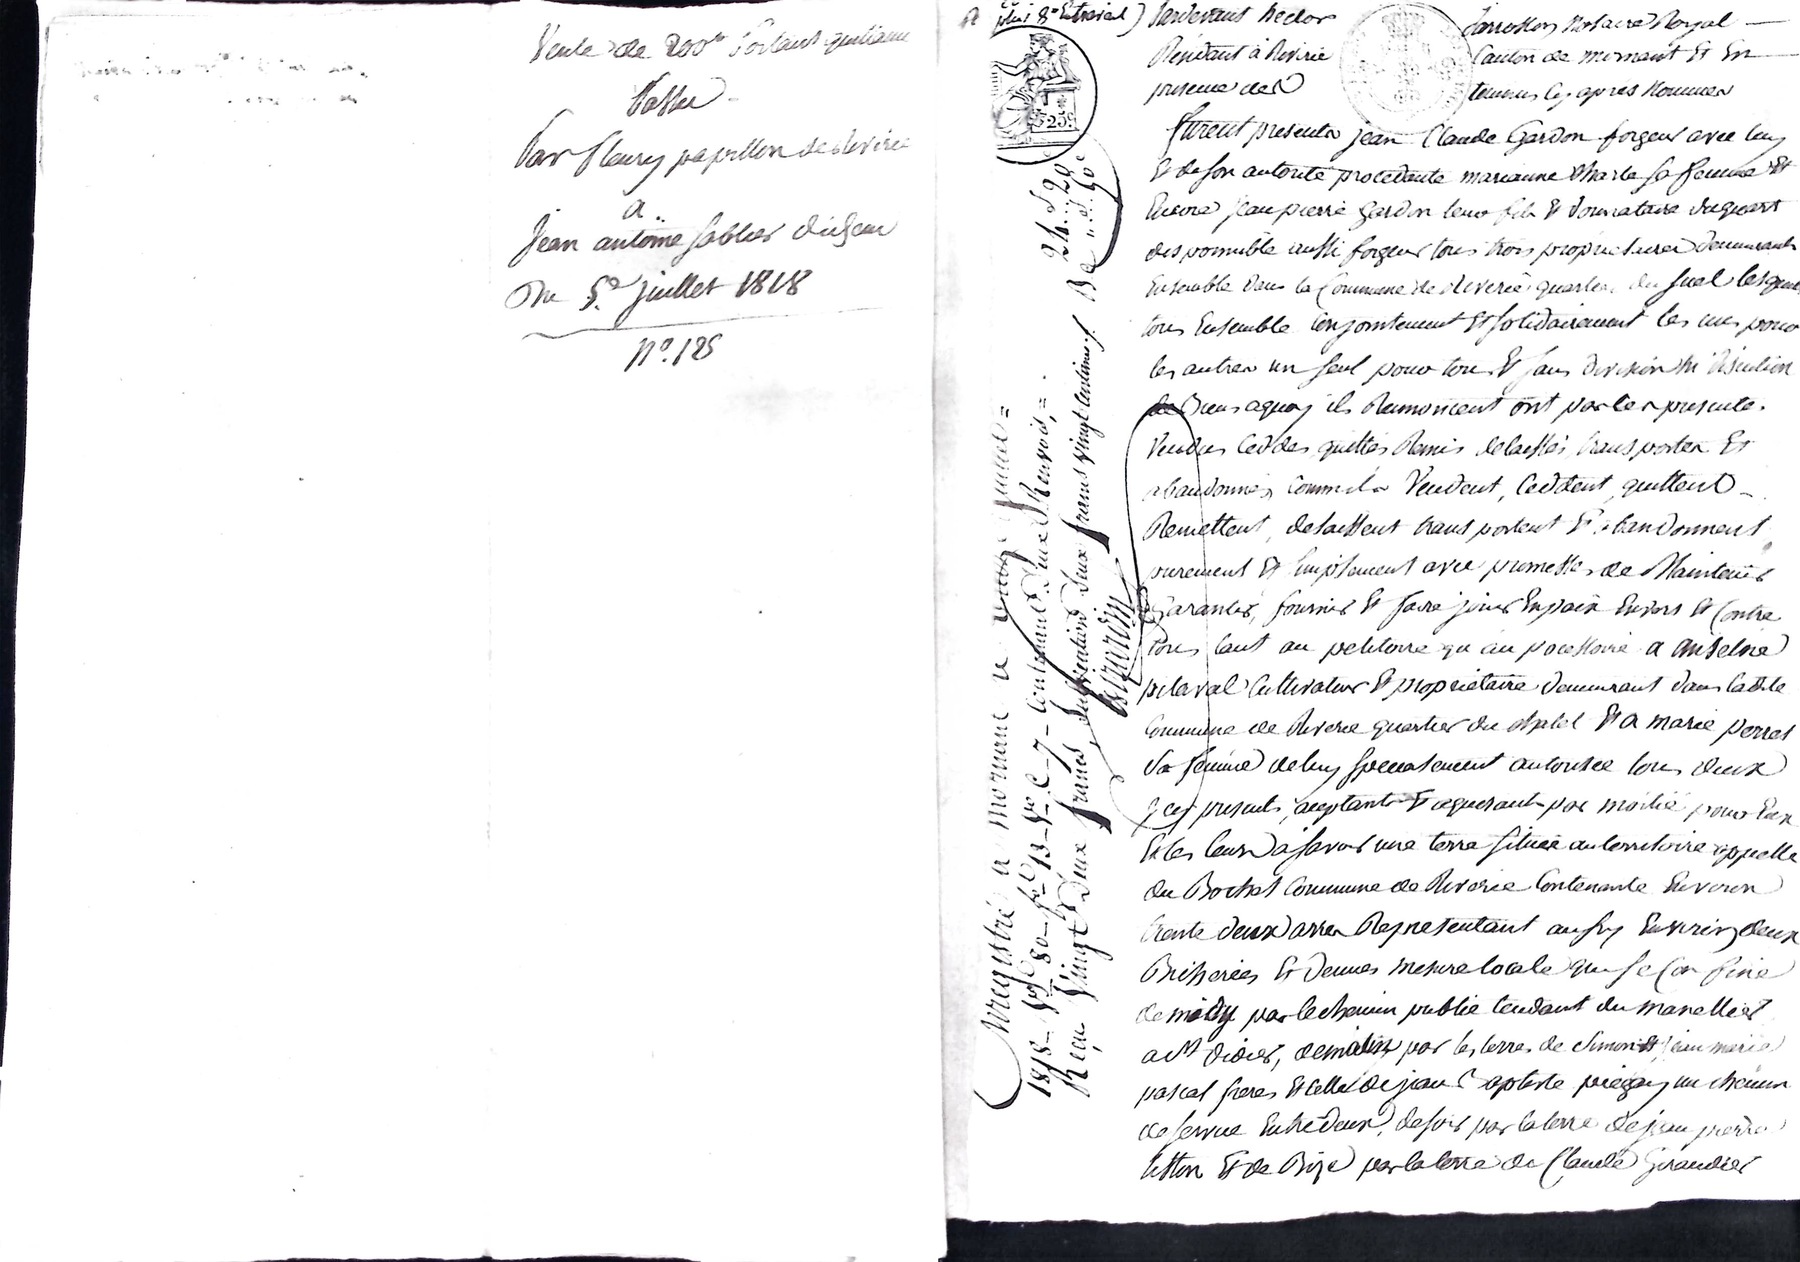 Vente de 200 fr portant quittance
Passée
Par fleury papillon de Riverie
a
Jean antoine sablier dudit lieu
Du 5e juillet 1818
No. 125
Pardevant hector Jarrosson Notaire Royal
Résidant à Riverie Canton de mornant Et En
présence des témoins Cy après Nommés
furent présents jean Claude Gardon forgeur avec luy
Et de son autorité procédante marianne sa femme Et
Encore jean pierre Gardon leur fils Et Donnataire du quart
disponnible aussi forgeur tous trois propriétaires demeurants
Ensemble dans la Commune de Riverie quartier du lesquels
tous Ensemble Conjointement Et solidairement les uns pour
les autres un seul pour tous Et sans division Ni discution
de Biens aquoy ils Renoncent ont par les présentes
Vendus Ceddés quittés Remis delaissés transportés Et
abandonnés, Comme ils Vendent, Ceddent, quittent
Remettent, delaissent transportent Et abandonnent
purement Et simplement avec promesse de Maintenir
Garantir, fournir Et faire jouir En paix Envers Et Contre
tous tant au petitoire qu'au possessoire a anselme
pilaval Cultivateur Et propriétaire demeurant dans ladite
Commune de Riverie quartier du Et a marie perret
sa femme de luy specialement autorisée tous deux
Icy présents, aceptants Et aquerants par moitié pour Eux
Et les leurs a savoir une terre située au territoire appellé
du Bochet Commune de Riverie Contenante Environ
trente deux ares Représentant Environ deux
Bicherées Et demies mesure locale qui se Confine
de midy par le chemin public tendant du manellier
a St didier, de matin par les terres de Simon Et jean marie
pascal freres Et celle de jean Baptiste un chemin
de servue Entre deux, de soir par la terre de jean pierre
Et de Bize par la terre de Claude Giraudier
Enregistré a mornant le juillet
1818 vo fo 80 fo 13 vo C 7 Contenant deux Renvois,
Reçu Vingt deux francs, subvention deux francs vingt Centimes